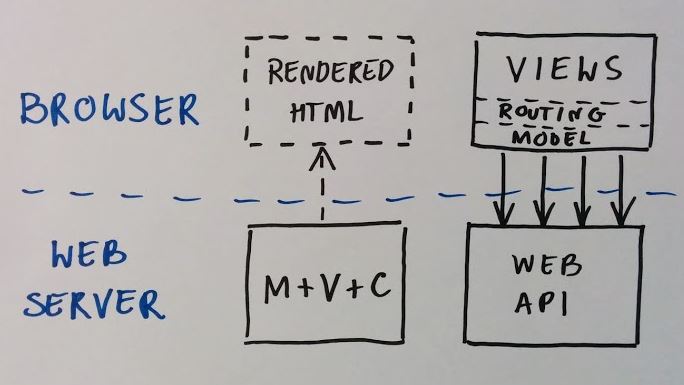 BROWSER
RENDERED
HTML
VIEWS
ROUTING
MODEL
WEB
SERVER
M+V+C
WEB
API